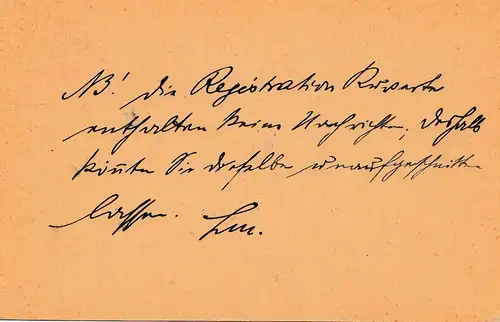 NB! die Registration Kuverte
enthalten keine Nachrichten, deshalb
können Sie dieselbe unaufgeschnitten
lassen.